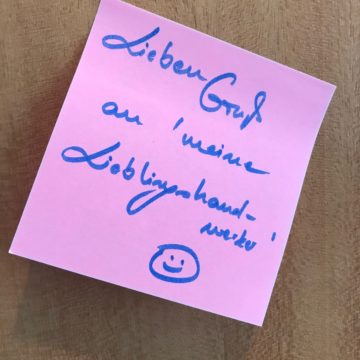 Lieben Gruß
an meine
Lieblingshand-
werker!